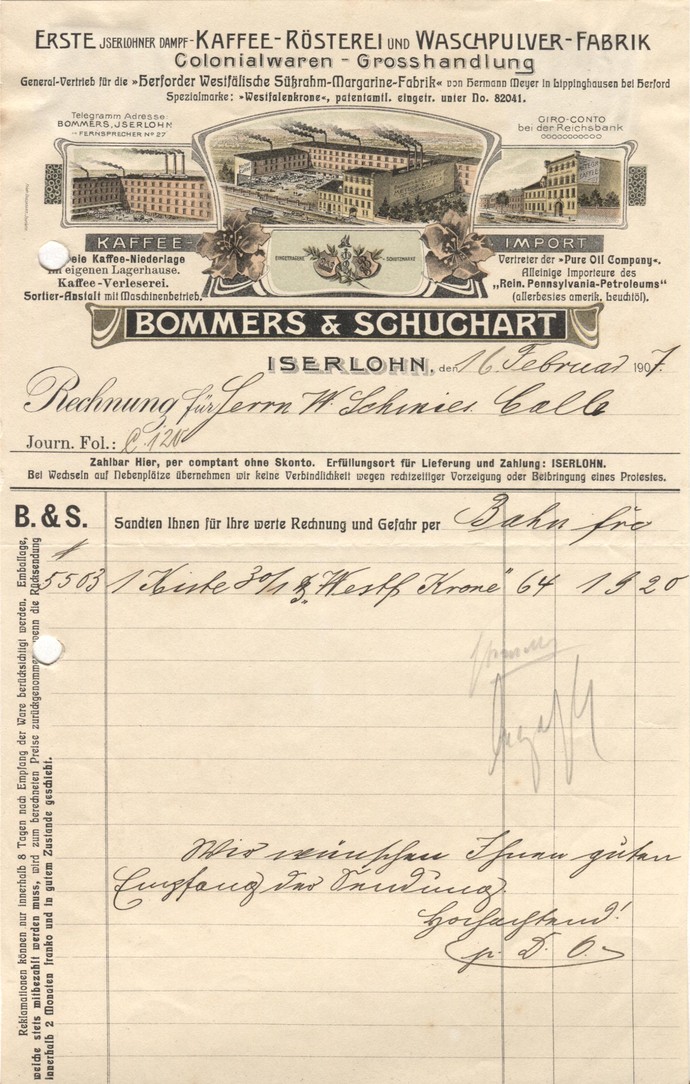 ERSTE JSERLOHNER DAMPF-KAFFEE-RÖSTEREI UND WASCHPULVER-FABRIK
Colonialwaren - Grosshandlung
General-Vertrieb für die »Herforder Westfälische Süßrahm-Margarine-Fabrik« von Hermann Meyer in Lippinghausen bei Herford
Spezialmarke: »Westfalenkrone«, patentamtl. eingetr. unter No. 82041.
Telegramm Adresse:
BOMMERS, JSERLOHN
FERNSPRECHER No 27
GIRO-CONTO
bei der Reichsbank
KAFFEE-
eie Kaffee-Niederlage
im eigenen Lagerhause.
Kaffee-Verleserei.
Sortier-Anstalt mit Maschinenbetrieb.
EINGETRAGENE SCHUTZMARKE
IMPORT
Vertreter der »Pure Oil Company«.
Alleinige Importeure des
„Rein. Pennsylvania-Petroleums"
(allerbestes amerik. Leuchtöl).
BOMMERS & SCHUCHART
ISERLOHN, den 16 Februar 1907.
Rechnung für Herrn W. Schmies Calle
Journ. Fol.: C. 120
Zahlbar Hier, per comptant ohne Skonto. Erfüllungsort für Lieferung und Zahlung: ISERLOHN.
Bei Wechseln auf Nebenplätze übernehmen wir keine Verbindlichkeit wegen rechtzeitiger Vorzeigung oder Beibringung eines Protestes.
B. & S.
Sandten Ihnen für Ihre werte Rechnung und Gefahr per Bahn fro
#
5503 1 Kiste 30/1 ℔ „Westf Krone" 64 19 20
Wir wünschen Ihnen guten
Empfang der Sendung.
Hochachtend!
p. D. O.
Reklamationen können nur innerhalb 8 Tagen nach Empfang der Ware berücksichtigt werden. Emballage,
welche stets mitbezahlt werden muss, wird zum berechneten Preise zurückgenommen, wenn die Rücksendung
innerhalb 2 Monaten franko und in gutem Zustande geschieht.